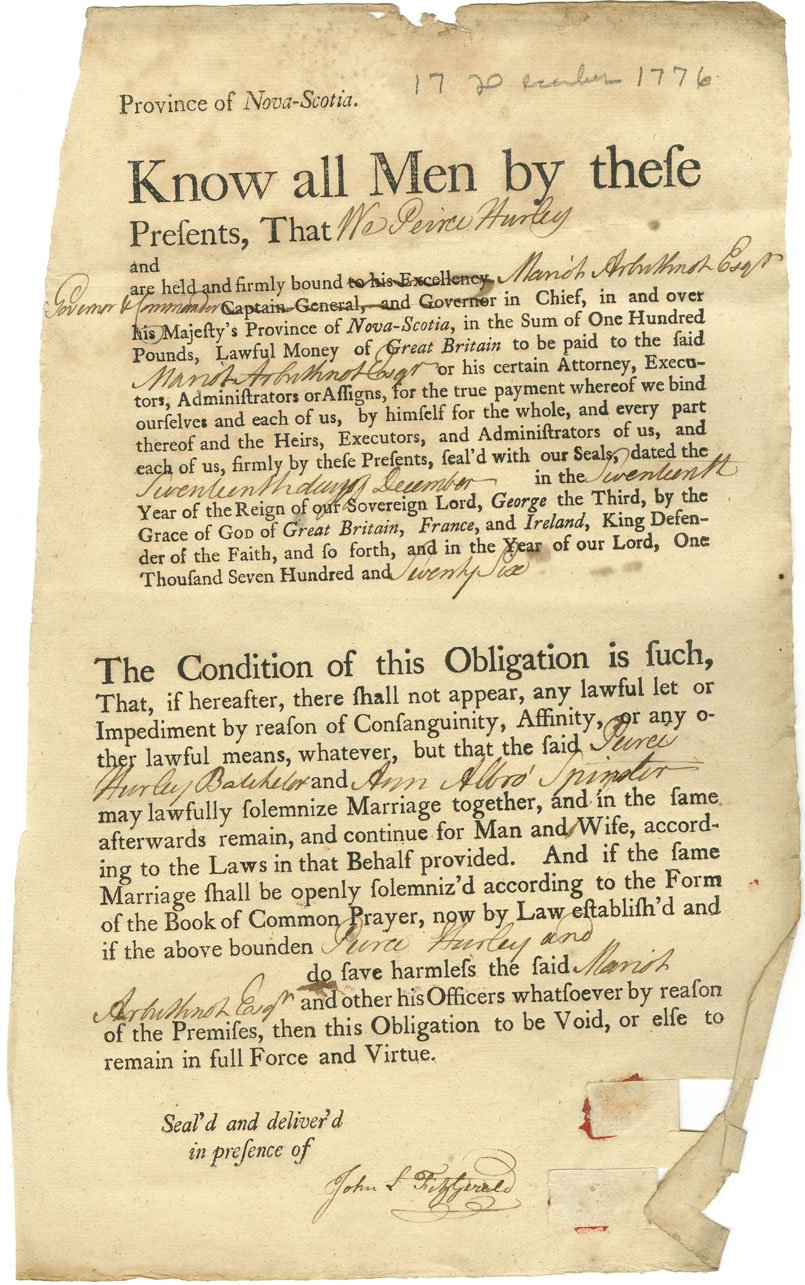 17 December 1776
Province of Nova-Scotia.
Know all Men by theſe
Preſents, That We Peirce Hurley
and
are held and firmly bound to his Excellency, Mariot Arbuthnot Esqr
Governor & Commander Captain-General, and Governor in Chief, in and over
his Majeſty's Province of Nova-Scotia, in the Sum of One Hundred
Pounds, Lawful Money of Great Britain to be paid to the ſaid
Mariot Arbuthnot Esqr or his certain Attorney, Execu-
tors, Adminiſtrators or Aſſigns, for the true payment whereof we bind
ourſelves and each of us, by himſelf for the whole, and every part
thereof and the Heirs, Executors, and Adminiſtrators of us, and
each of us, firmly by theſe Preſents, ſeal'd with our Seals, dated the
Seventeenth day of December in the Seventeenth
Year of the Reign of our Sovereign Lord, George the Third, by the
Grace of GOD of Great Britain, France, and Ireland, King Defen-
der of the Faith, and ſo forth, and in the Year of our Lord, One
Thouſand Seven Hundred and Seventy Six
The Condition of this Obligation is ſuch,
That, if hereafter, there ſhall not appear, any lawful let or
Impediment by reaſon of Conſanguinity, Affinity, or any o-
ther lawful means, whatever, but that the ſaid Peirce
Hurley Batchelor and Ann Albro Spinster
may lawfully ſolemnize Marriage together, and in the ſame
afterwards remain, and continue for Man and Wife, accord-
ing to the Laws in that Behalf provided. And if the ſame
Marriage ſhall be openly ſolemniz'd according to the Form
of the Book of Common Prayer, now by Law eſtabliſh'd and
if the above bounden Peirce Hurley and
do ſave harmleſs the ſaid Mariot
Arbuthnot Esqr and other his Officers whatſoever by reaſon
of the Premiſes, then this Obligation to be Void, or elſe to
remain in full Force and Virtue.
Seal'd and deliver'd
in preſence of
John S Fitzgerald